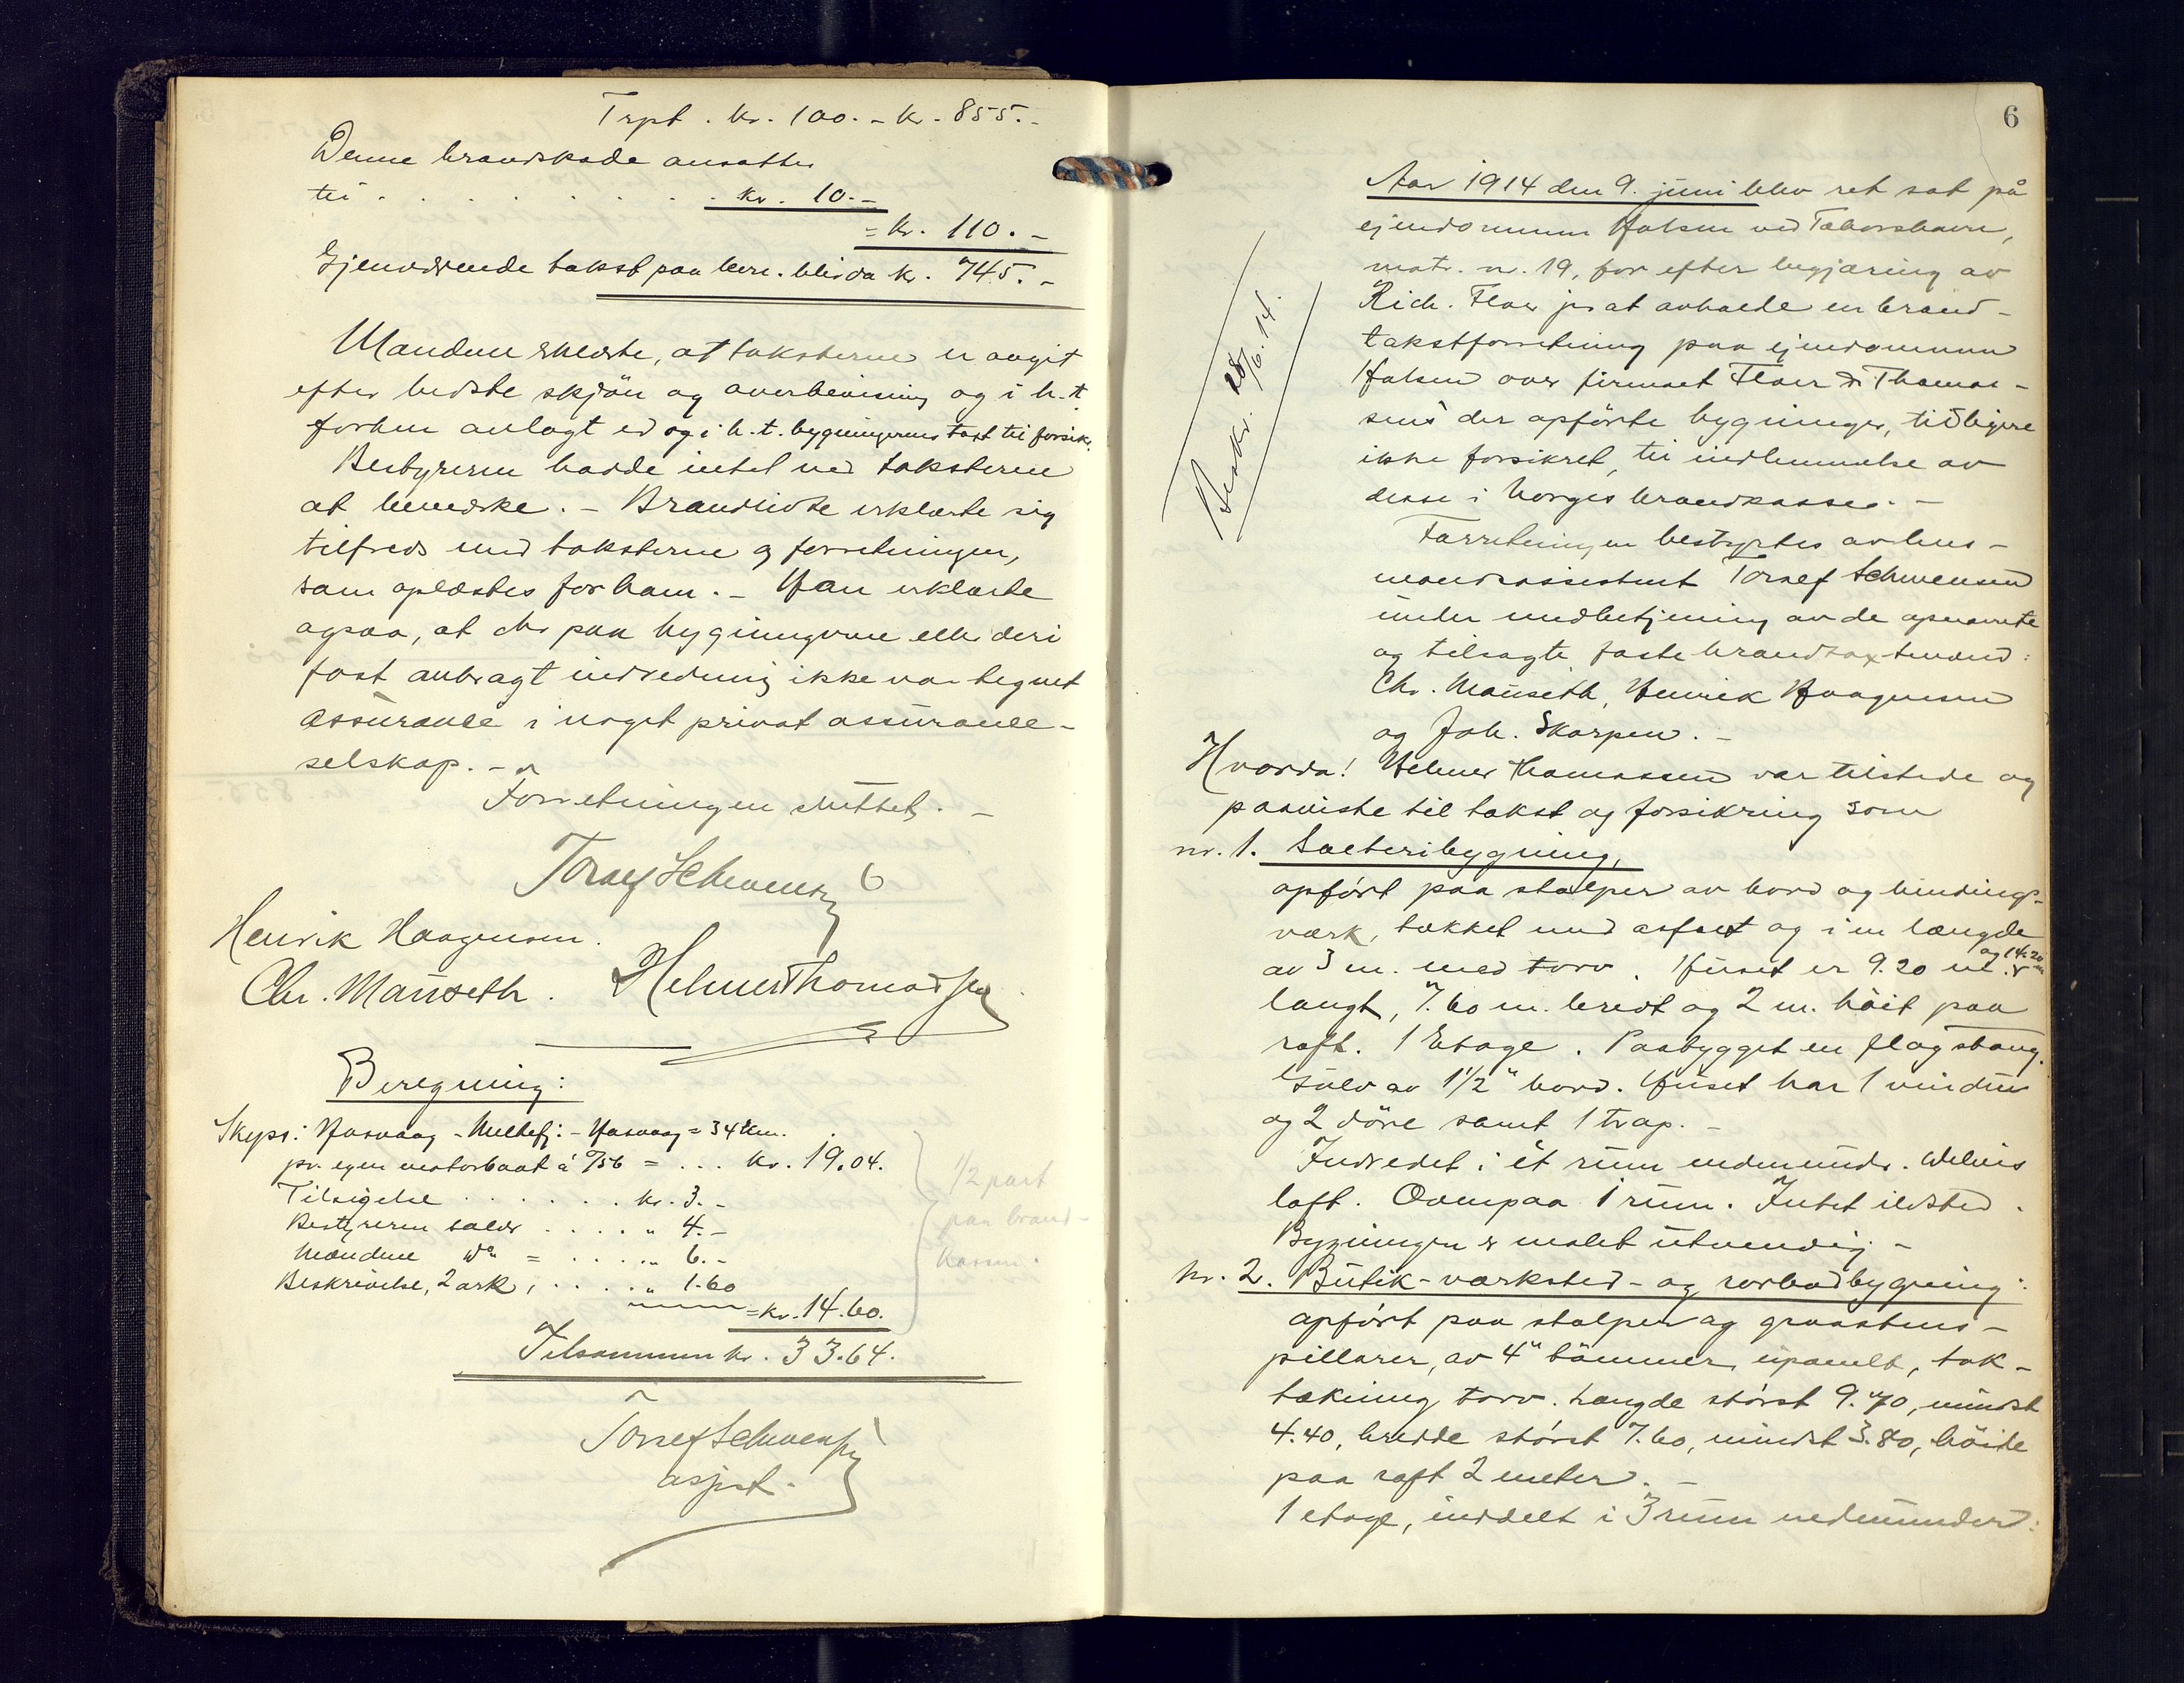 Trpt. kr. 100.- kr. 855.-
Denne brandskade ansattes
til . . . . . . . . kr. 10.-
= kr. 110.-
Gjenværende takst paa bevæ. blir da kr. 745.-
Mændene erklærte, at taksterne er avgit
efter bedste skjön og overbevisning og i h.t.
forhen avlagt ed og i h.t. bygningernes tast til forsikr.
Bestyreren hadde intet ved taksterne
at bemerke. - Brandlidte erklærte sig
tilfreds med taksterne og forretningen,
som oplæstes for ham. - Han erklærte
ogsaa, at der paa bygningerne eller deri
fast anbragt indredning ikke var tegnet
assurance i noget privat assurance-
selskap. -
Forretningen sluttet. -
Toralf Schwensen
Henrik Haagensen.
Chr. Mauseth. Helmer Thomassen
Beregning:
Skyds: Hasvaag - Meltefj: - Hasvaag = 34 km.
pr. egen motorbaat á 7/56 = ... kr. 19.04.
Tilsigelse . . . . . . kr. 3.-
Bestyreren salær . . . . " 4.-
Mændene do = . . . . " 6.-
Beskrivelse, 2 ark, . . . . " 1.60
= kr. 14.60.
Tilsammen kr. 33.64.
1/2 part
paa brand-
kassen.
Toralf Schwensen
assist.
6
Aar 1914 den 9. juni blev ret sat på
ejendommen Halsen ved Taborshavn,
matr. nr. 19, for efter begjæring av
Rich. Floer jr. at avholde en brand-
takstforretning paa ejendommen
Halsen over firmaet Floer & Thomas-
sens der opförte bygninger, tidligere
ikke forsikret, til indlemmelse av
disse i Norges brandkasse. -
Forretningen bestyrtes av lens-
mandsassistent Toralf Schwensen
under medbetjening av de opnævnte
og tilsagte faste brandtaxtmænd:
Chr. Mauseth, Henrik Haagensen
og Joh. Skarpen. -
Beskr. 28/6.14.
Hvorda! Helmer Thomassen var tilstede og
paaviste til takst og forsikring som
nr. 1. Salteribygning,
opfört paa stolper av bord og bindings-
værk, tækket med asfalt og i en længde
av 3 m. med torv. Huset er 9.20 m. og 14.20 m
langt, 7.60 m. bredt og 2 m. höit paa
raft. 1 Etage. Paabygget en flagstang.
Gulv av 1 1/2" bord. Huset har 1 vindu
og 2 döre samt 1 trap. -
Indredet i et rum nedenunder. Delvis
loft. Ovenpaa 1 rum. Intet ildsted.
Bygningen er malet utvendig. -
Nr. 2. Butik-værksted- og rorbodbygning:
opfört paa stolper og graastens-
pillarer, av 4" tömmer, upanelt, tak-
tækning torv. Længde störst 9.70, mindst
4.40, bredde störst 7.60, mindst 3.80, höide
paa raft 2 meter. -
1 etage, inddelt i 3 rum nedenunder: